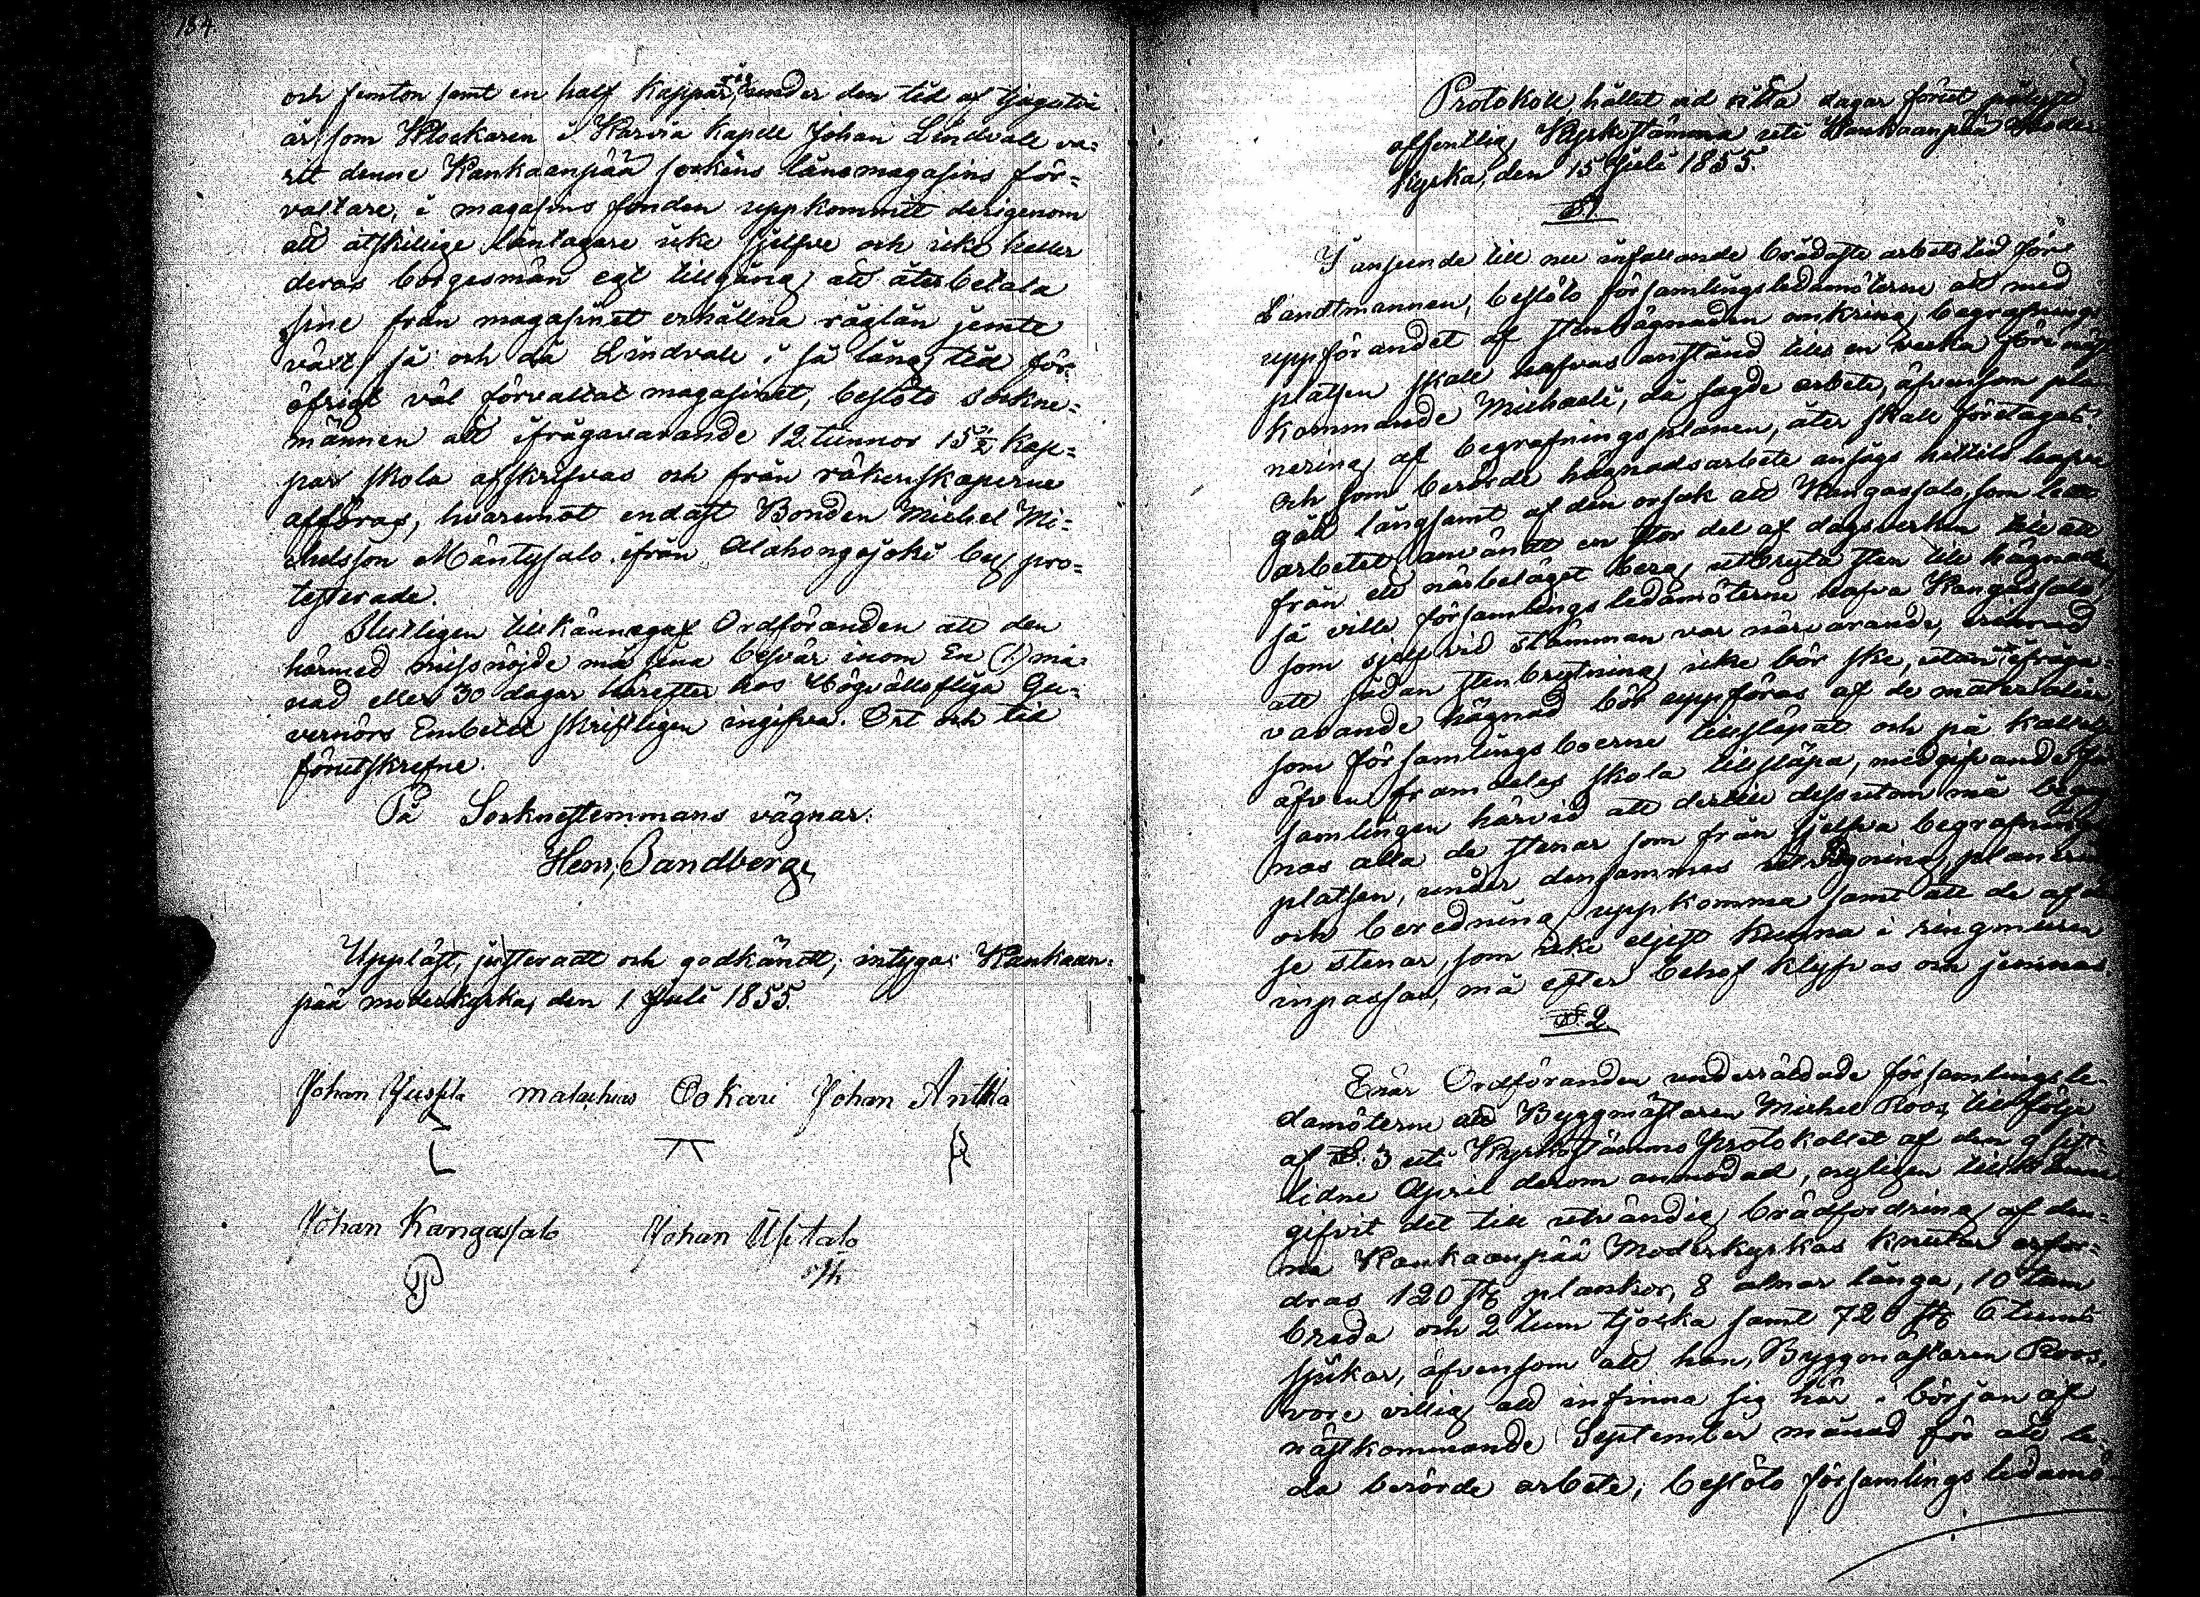 184.
och femton samt en half kappar råg, under den tid af tjugutvå
år, som Klockaren i Karvia kapell Johan Lindvall va-
rit denne Kankaanpää sockens lånemagasins för-
valtare, i magasins fonden uppkommit derigenom
att åtskillige låntagare icke sjelfve och icke heller
deras borgesmän egt tillgång att återbetala
sine från magasinet erhållna råglån jemte
växt, så och då Lindvall i så lång tid för
öfrigt väl förvaltat magasinet, beslöto Sockne-
männen att ifrågavarande 12 tunnor 15 1/2 kap-
par skola afskrifvas och från räkenskaperne
afföras, hvaremot endast Bonden Michel Mi-
chelsson Mäntysalo ifrån Alahongojoki by pro-
testerade.
Slutligen tillkännagaf Ordföranden att den
härmed missnöjde må sina besvär inom En (1) må-
nad eller 30 dagar härefter hos Högvällofliga Gu-
vernörs Embetet skriftligen ingifva. Ort och tid
förutskrefne.
På Socknestemmans vägnar:
Henr. Sandberg
Uppläst, justeradt och godkändt; intyga: Kankaan-
pää moderkyrka, den 1 Juli 1855.
Johan Jussila Matachias Ookari Johan Anttila
Johan Kangassalo Johan Ylitalo
Protokoll, hållet vid åtta dagar förut pålyst
offentlig Kyrkostämma uti Kankaanpää Moder-
kyrka, den 15 Juli 1855.
§ 1
I anseende till nu infallande brådaste arbetstid för
Landtmannen, beslöto församlingsledamöterne att med
uppförandet af stenhägnaden omkring begrafnings
platsen skall hafvas anstånd till en vecka före näst
kommande Michaeli, då sagde arbete, äfvensom pla-
nering af begrafningsplanen, åter skall företagas.
Och som berörde hägnadsarbete ansågs hittills hafva
gått långsamt af den orsak att Kangassalo, som ledt
arbetet, användt en stor del af dagsverken till att
från ett närbeläget berg utbryta sten till hägnaden,
så ville församlingsledamöterne hafva Kangassalo,
som sjelf vid stämman var närvarande, erinrad
att sådan stenbrytning icke bör ske, utan ifråga-
varande hägnad bör uppföras af de materialier
som församlingsboerne tillsläpat och på kallelse
äfven framdeles skola tillsläpa, medgifvande för-
samlingen härvid att dertill dessutom må begag-
nas alla de stenar som från sjelfva begrafnings
platsen, under densammas planering
och beredning uppkomma samt att de af des-
se stenar, som icke eljest kunna i ringmuren
inpassas, må efter behof klyfvas och jemnas.
§ 2
Enär Ordföranden underrättade församlingsle-
damöterne att Byggmästaren Michel Roos, till följe
af § 3 uti Kyrkostämmo Protokollet af den 9 sist-
lidne April derom anmodad, nyligen tillkänna
gifvit det till utvändig brädfordring af den-
na Kankaanpää Moderkyrkas knutar erfor-
dras 120 st. plankor, 8 alnar långa, 10 tum
breda och 2 tum tjocka samt 720 st. 6 tums
spikar, äfvensom att han, Byggmästaren Roos,
vore villig att infinna sig här i början af
nästkommande September månad för att le-
da berörde arbete; beslöto församlingsledamö-